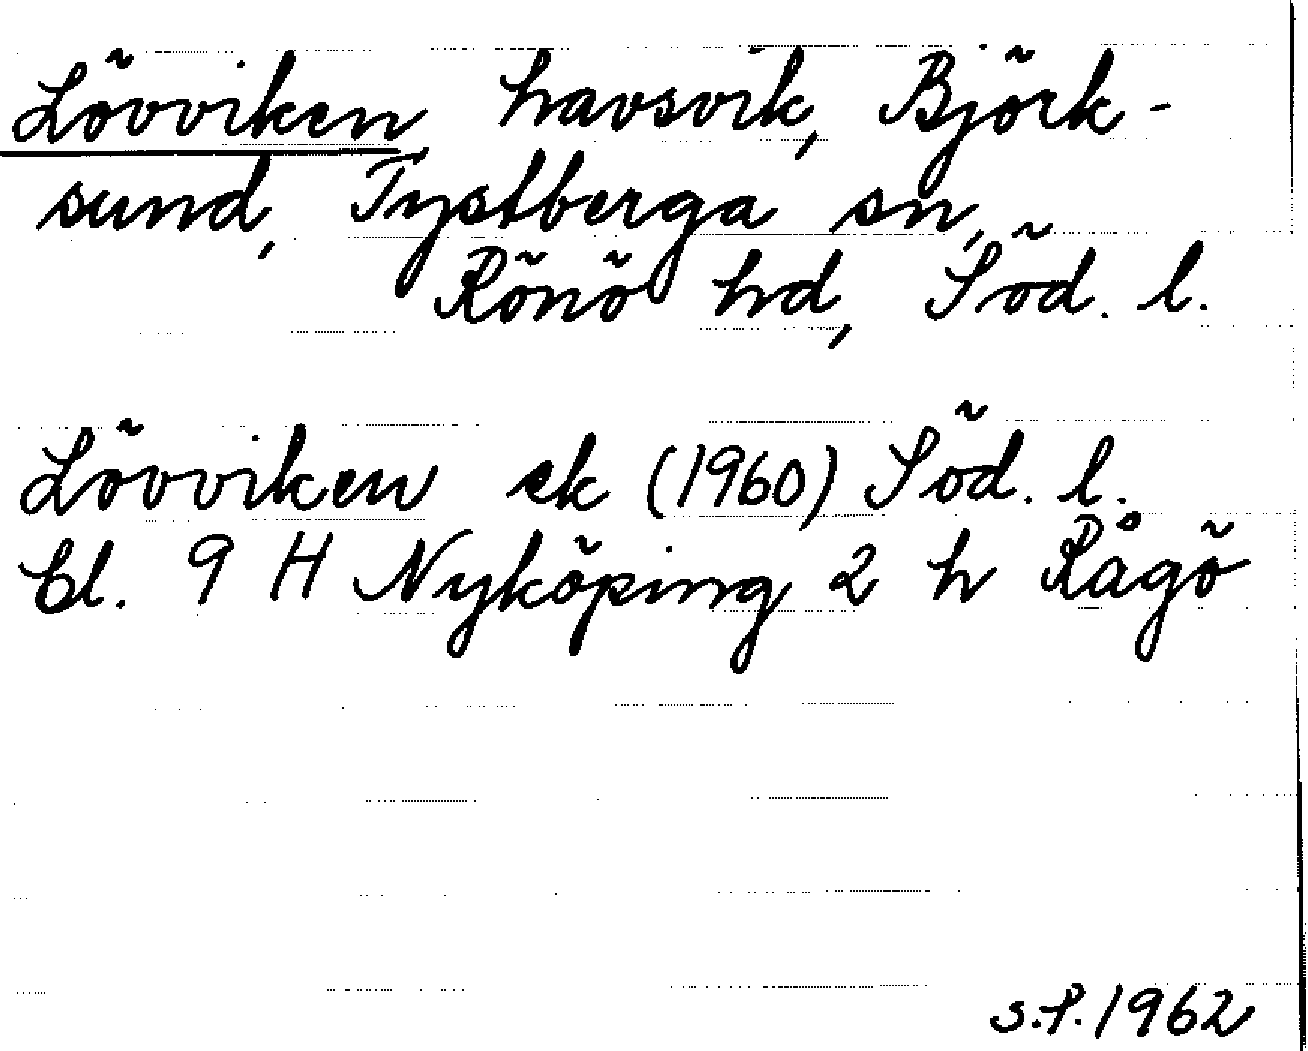 Lövviken havsvik, Björk-
sund, Tystberga sn,
Rönö hd, Söd. l.
Lövviken ek (1960) Söd. l.
bl. 9 H Nyköping 2 h Rågö
s.P. 1962